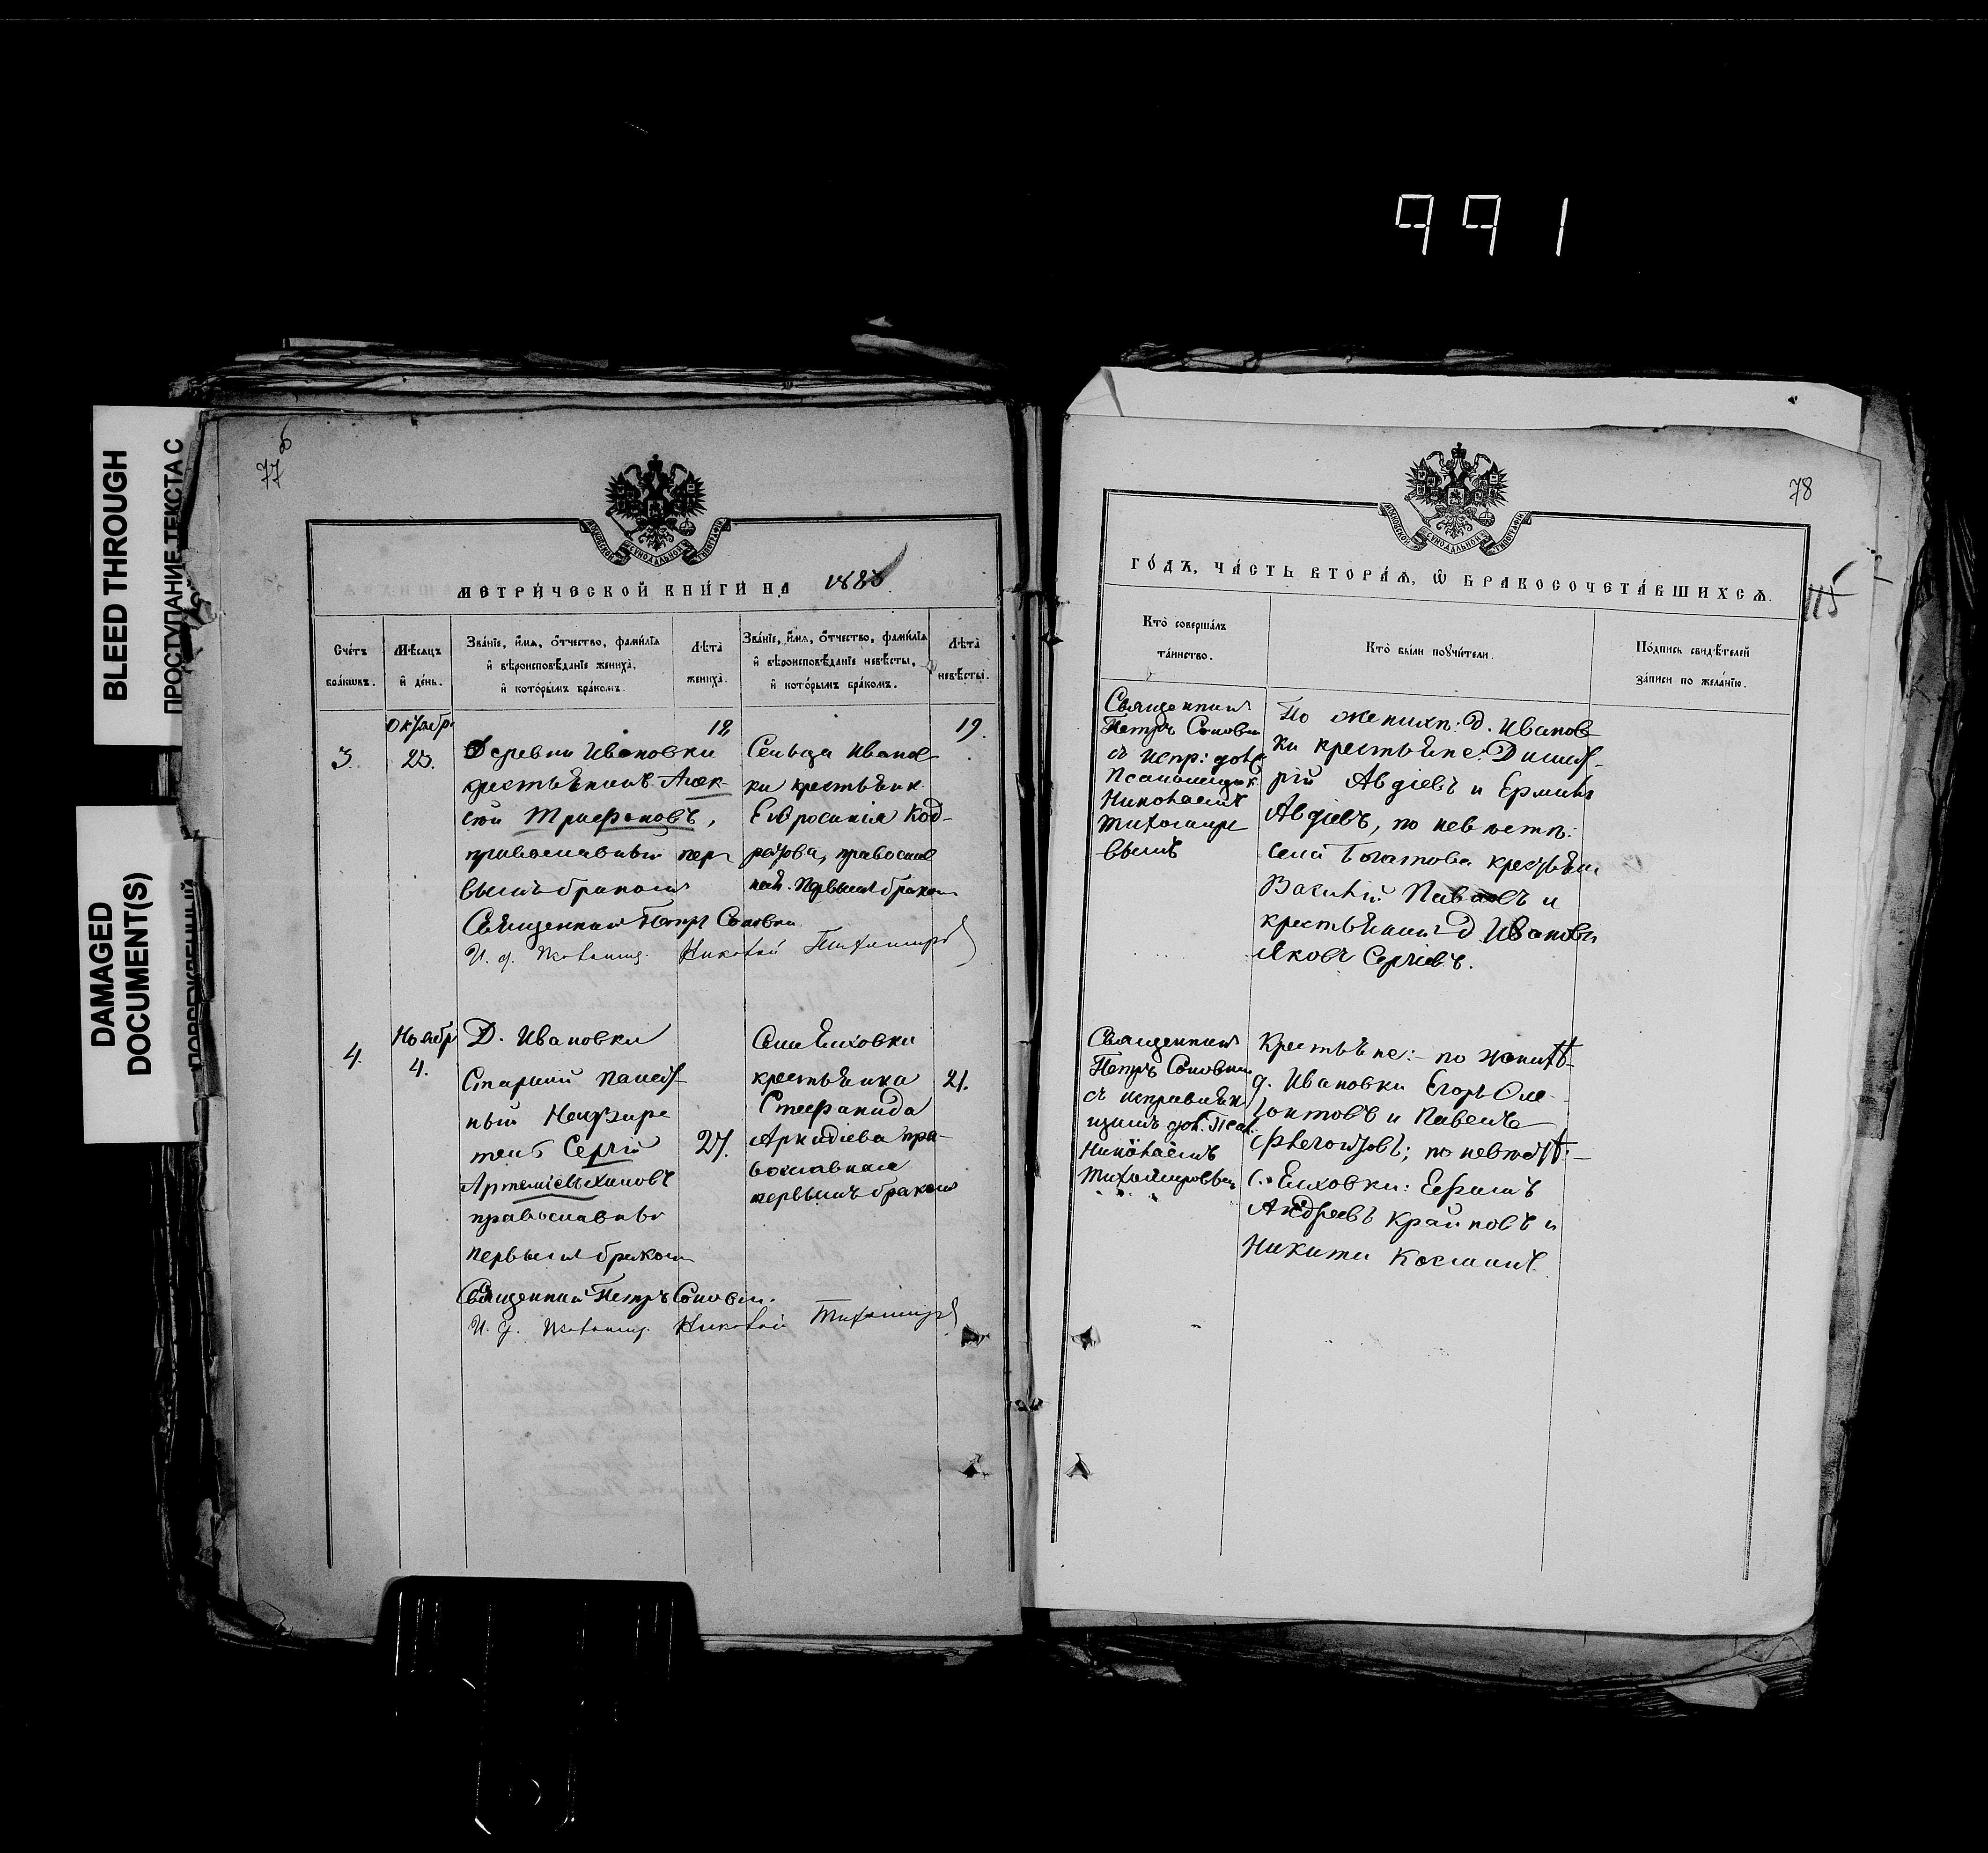 991
BLEED THROUGH
ПРОСТУПАНИЕ ТЕКСТА С
DAMAGED
DOCUMENT(S)
77
МОСКОВСКОЙ СѴНОДАЛЬНОЙ ТИПОГРАФІИ
МЕТРИ́ЧЕСКОЙ КНИ́ГИ НА 188
Сче́тъ бра́кѡвъ.
Мѣ́сяцъ и҆ де́нь.
Зва́нїе, и҆́мѧ, ѻ҆́тчество, фами́лїѧ и҆ вѣроисповѣ́данїе жениха̀, и҆ кото́рымъ бра́комъ.
Лѣ́та жениха̀.
Зва́нїе, и҆́мѧ, ѻ҆́тчество, фами́лїѧ и҆ вѣроисповѣ́данїе невѣ́сты, и҆ кото́рымъ бра́комъ.
Лѣ́та невѣ́сты.
3.
Октябр.
23.
Деревни Ивановки
крестьянинъ Алек-
сѣй Трифоновъ,
православный пер
вымъ бракомъ
19.
Сельца Иванов
ки крестьянк.
Евросинія Код-
ратова, православ
ная. Первымъ браком
Священникъ Петръ
И. д. Псаломщ. Николай Тихомировъ
4.
Ноябр
4.
Д. Ивановки
Старшій
Сергій
православный
первымъ бракомъ
27.
Села Елховки
крестьянка
Стефанида
Аркадіева пра-
вославная
первымъ бракомъ
21.
Священникъ Петръ
И. д. Псаломщ. Николай Тихомировъ
78
115
МОСКОВСКОЙ СѴНОДАЛЬНОЙ ТИПОГРАФІИ
ГО́ДЪ, ЧА́СТЬ ВТОРА́Ѧ, Ѽ БРАКОСОЧЕТА́ВШИХСѦ.
Кто̀ соверша́лъ та́инство.
Кто̀ бы́ли поꙋчи́тели.
По́дпись свидѣ́телей за́писи по жела́нїю.
Священникъ
Петръ
съ испр: дол
Псаломщик
Николаемъ
Тихомиро
вымъ
По женихѣ: д. Иванов
ки крестьяне: Димит-
рій Авдіевъ и Ермилъ
Авдіевъ, по невѣстѣ:
села Богатова крестьян
Василій Павловъ и
крестьянинъ д. Ивановки
Яковъ Сергіевъ.
Священникъ
Петръ
съ исправляю
щимъ дол. Псал.
Николаемъ
Тихомировым
Крестьяне:- по женихѣ
д. Ивановки Егоръ
и Павелъ
по невѣстѣ:-
с. Елховки: Ефимъ
Андреевъ Крайновъ и
Никита